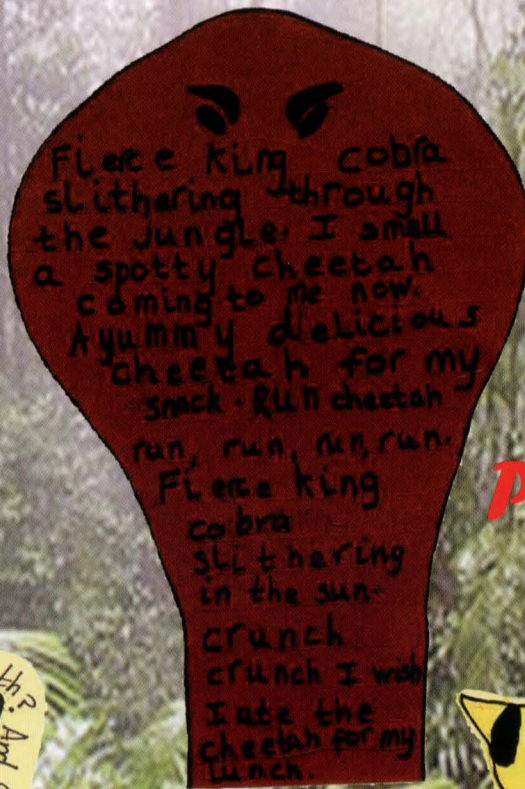 Fierce king cobra
slithering through
the Jungle. I smell
a spotty cheetah
coming to me now.
A yummy delicious
cheetah for my
snack. Run cheetah
run, run, run, run.
Fierce king
cobra
slithering
in the sun.
crunch
crunch I wish
I ate the
cheetah for my
lunch.
P
? And